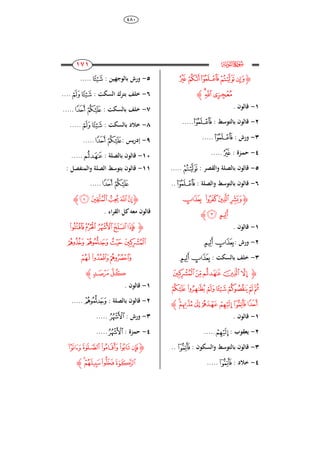 ٤٨٠
١٧١
٥- ورش بالوجهين : شَيْـًٔا .....
٦- خلف بترك السكت : شَيْـًٔا وَلَمْ ....
٧- خلف بالسكت : عَلَيْكُمْ أَحَدًا .....
٨- خلاد بالسكت : شَيْـًٔا وَلَمْ .....
٩- إدريس : عَلَيْكُمْ أَحَدًا .....
١٠- قالون بالصلة : عَٰهَدتُّم .....
١١- قالون بتوسط الصلة والمنفصل :
عَلَيْكُمْ أَحَدًا .....
﴿ إِنَّ ٱللَّهَ يُحِبُّ ٱلْمُتَّقِينَ ﴾
قالون معه كل القراء .
﴿ فَإِذَا ٱنسَلَخَ ٱلْأَشْهُرُ ٱلْحُرُمُ فَٱقْتُلُوا۟
ٱلْمُشْرِكِينَ حَيْثُ وَجَدتُّمُوهُمْ وَخُذُوهُمْ
وَٱحْصُرُوهُمْ وَٱقْعُدُوا۟ لَهُمْ
كُلَّ مَرْصَدٍ ﴾
١- قالون .
٢- قالون بالصلة : وَجَدتُّمُوهُمْ .....
٣- ورش : ٱلْأَشْهُرُ .....
٤- حمزة : ٱلْأَشْهُرُ .....
﴿ فَإِن تَابُوا۟ وَأَقَامُوا۟ ٱلصَّلَوٰةَ وَءَاتَوُا۟
ٱلزَّكَوٰةَ فَخَلُّوا۟ سَبِيلَهُمْ ﴾
﴿ وَإِن تَوَلَّيْتُمْ فَٱعْلَمُوٓا۟ أَنَّكُمْ غَيْرُ
مُعْجِزِى ٱللَّهِ ﴾
١- قالون .
٢- قالون بالتوسط : فَٱعْلَمُوٓا۟ .....
٣- ورش : فَٱعْلَمُوٓا۟ .....
٤- حمزة : غَيْرُ .....
٥- قالون بالصلة والقصر : تَوَلَّيْتُمْ .....
٦- قالون بالتوسط والصلة : فَٱعْلَمُوٓا۟ ..
﴿ وَبَشِّرِ ٱلَّذِينَ كَفَرُوا۟ بِعَذَابٍ
أَلِيمٍ ﴾
١- قالون .
٢- ورش : بِعَذَابٍ أَلِيمٍ .
٣- خلف بالسكت : بِعَذَابٍ أَلِيمٍ .
﴿ إِلَّا ٱلَّذِينَ عَٰهَدتُّم مِّنَ ٱلْمُشْرِكِينَ
ثُمَّ لَمْ يَنقُصُوكُمْ شَيْـًٔا وَلَمْ يُظَٰهِرُوا۟ عَلَيْكُمْ
أَحَدًا فَأَتِمُّوٓا۟ إِلَيْهِمْ عَهْدَهُمْ إِلَىٰ مُدَّتِهِمْ ﴾
١- قالون .
٢- يعقوب : إِلَيْهِمْ .....
٣- قالون بالتوسط والسكون : فَأَتِمُّوٓا۟ ..
٤- خلاد : فَأَتِمُّوٓا۟ .....